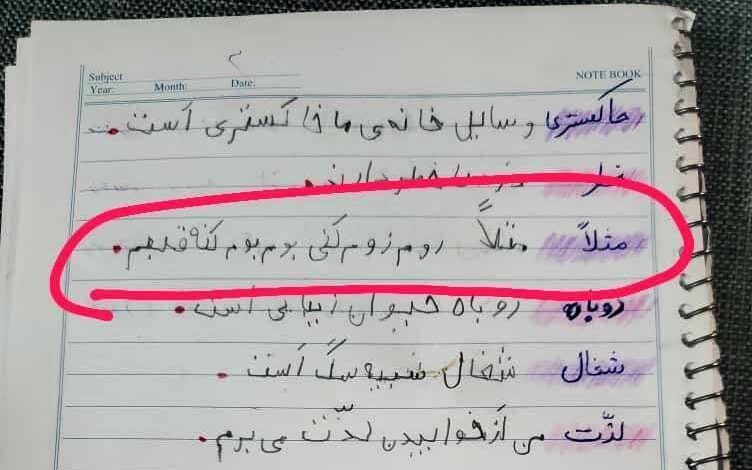 ۲
Subject NOTE BOOK
Year: Month: Date:
خاکستری وسایل خانه‌ی ما خاکستری اَست.
مثلاً مثلاً روم زوم کنی بوم بوم کنه قلبم.
روباه روباه حیوان زیبایی اَست.
شغال شغال شبیه سگ اَست.
لذّت من اَز خوابیدن لذّت می‌برم.